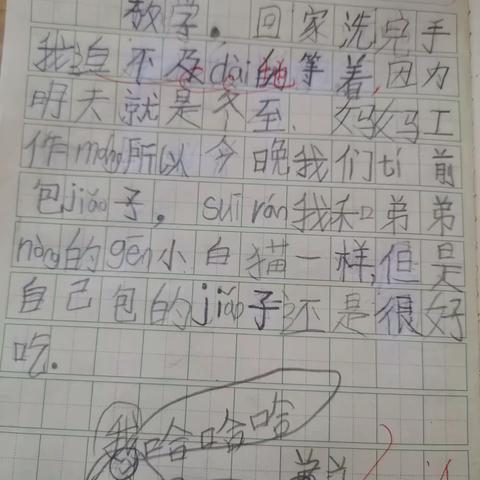 放学。回家洗完手
我迫不及dài地等着,因为
明天就是冬至.妈妈工
作máng所以今晚我们tí前
包jiǎo子。suī rán我和弟弟
nòng的gēn小白猫一样,但是
自己包的jiǎo子还是很好
吃.
我哈哈哈